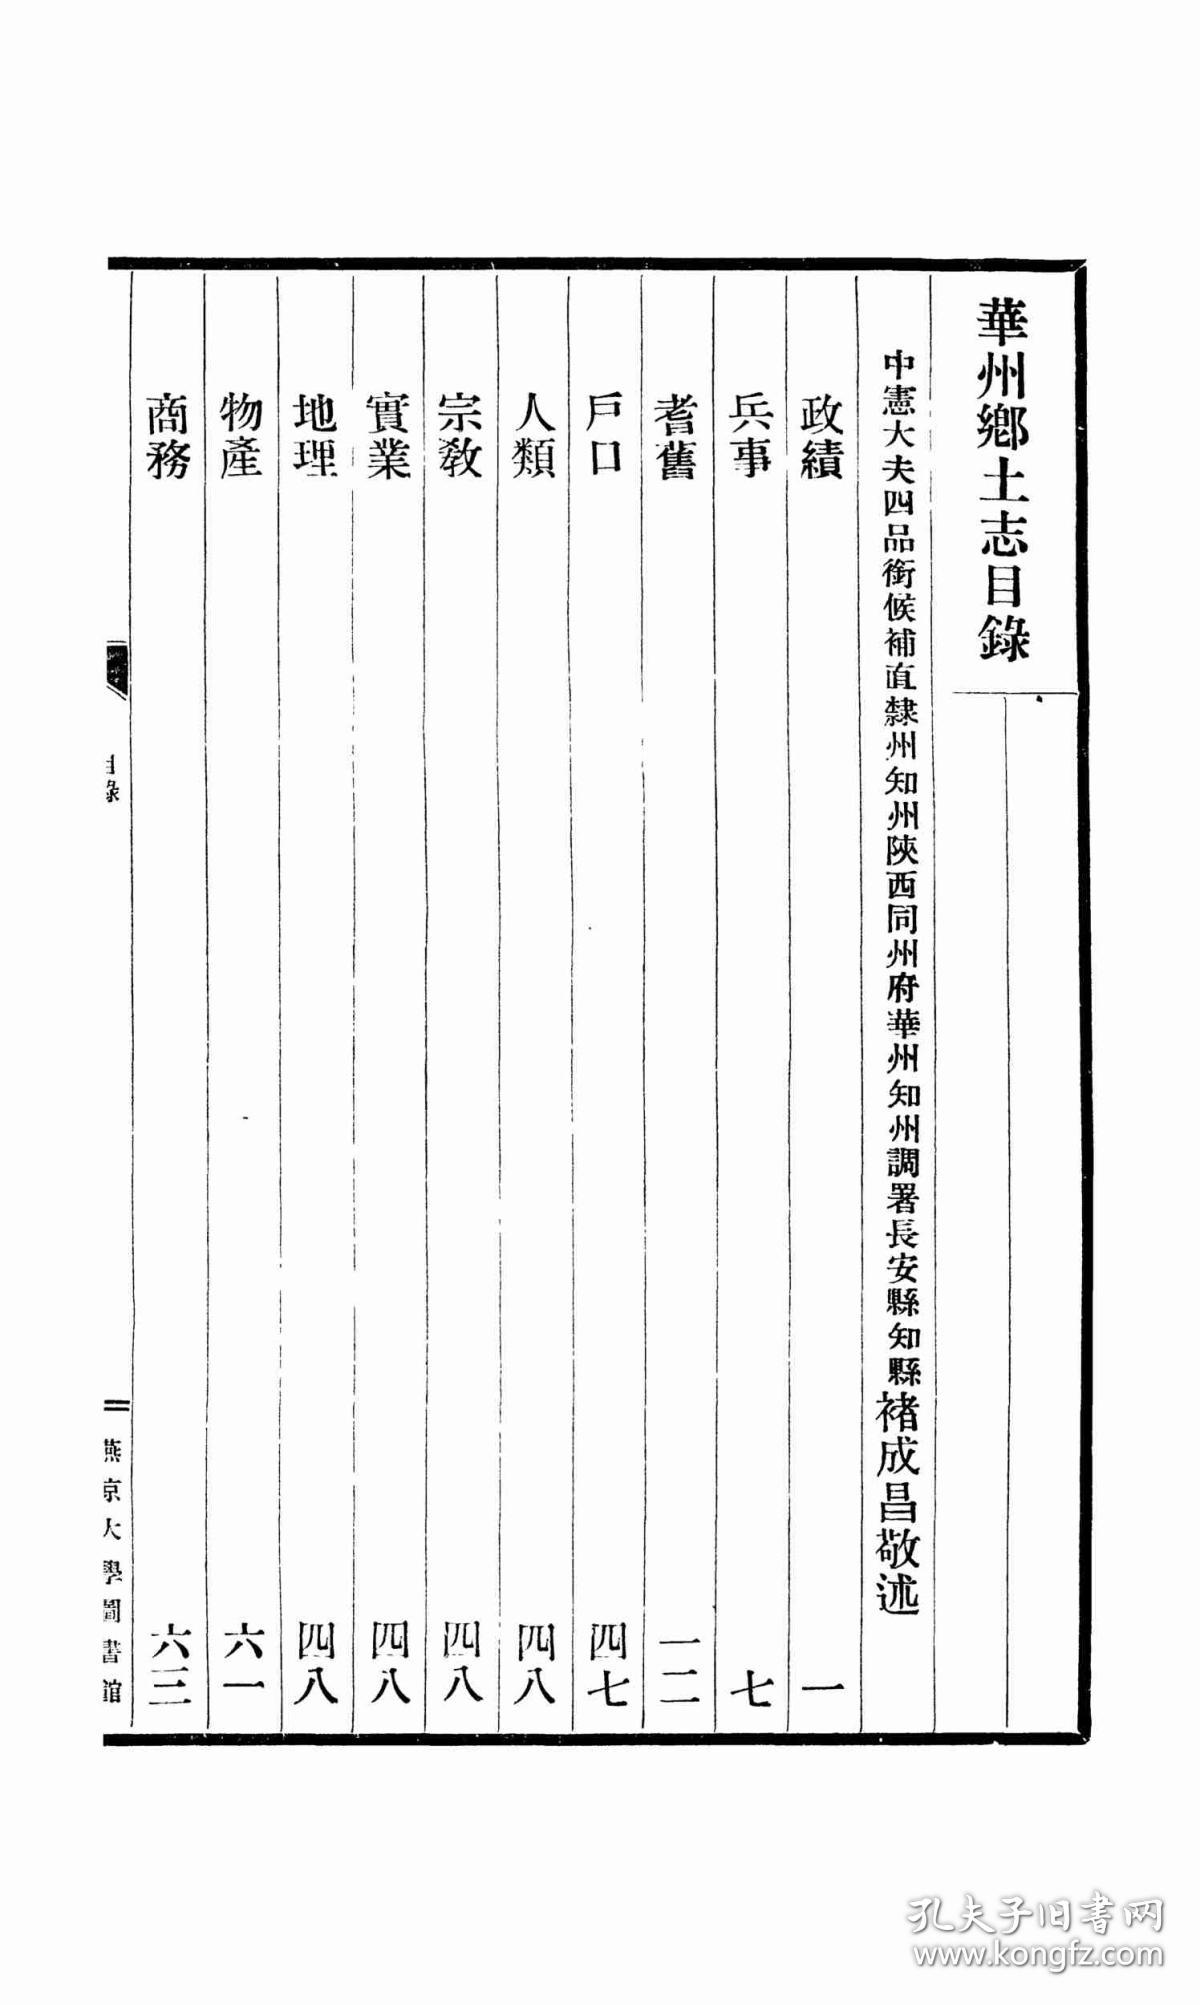 華州鄉土志目錄
中憲大夫四品銜候補直隸州知州陝西同州府華州知州調署長安縣知縣褚成昌敬述
政績 一
兵事 七
耆舊 一二
戶口 四七
人類 四八
宗教 四八
實業 四八
地理 四八
物產 六一
商務 六三
目錄
燕京大學圖書館
孔夫子旧书网
www.kongfz.com